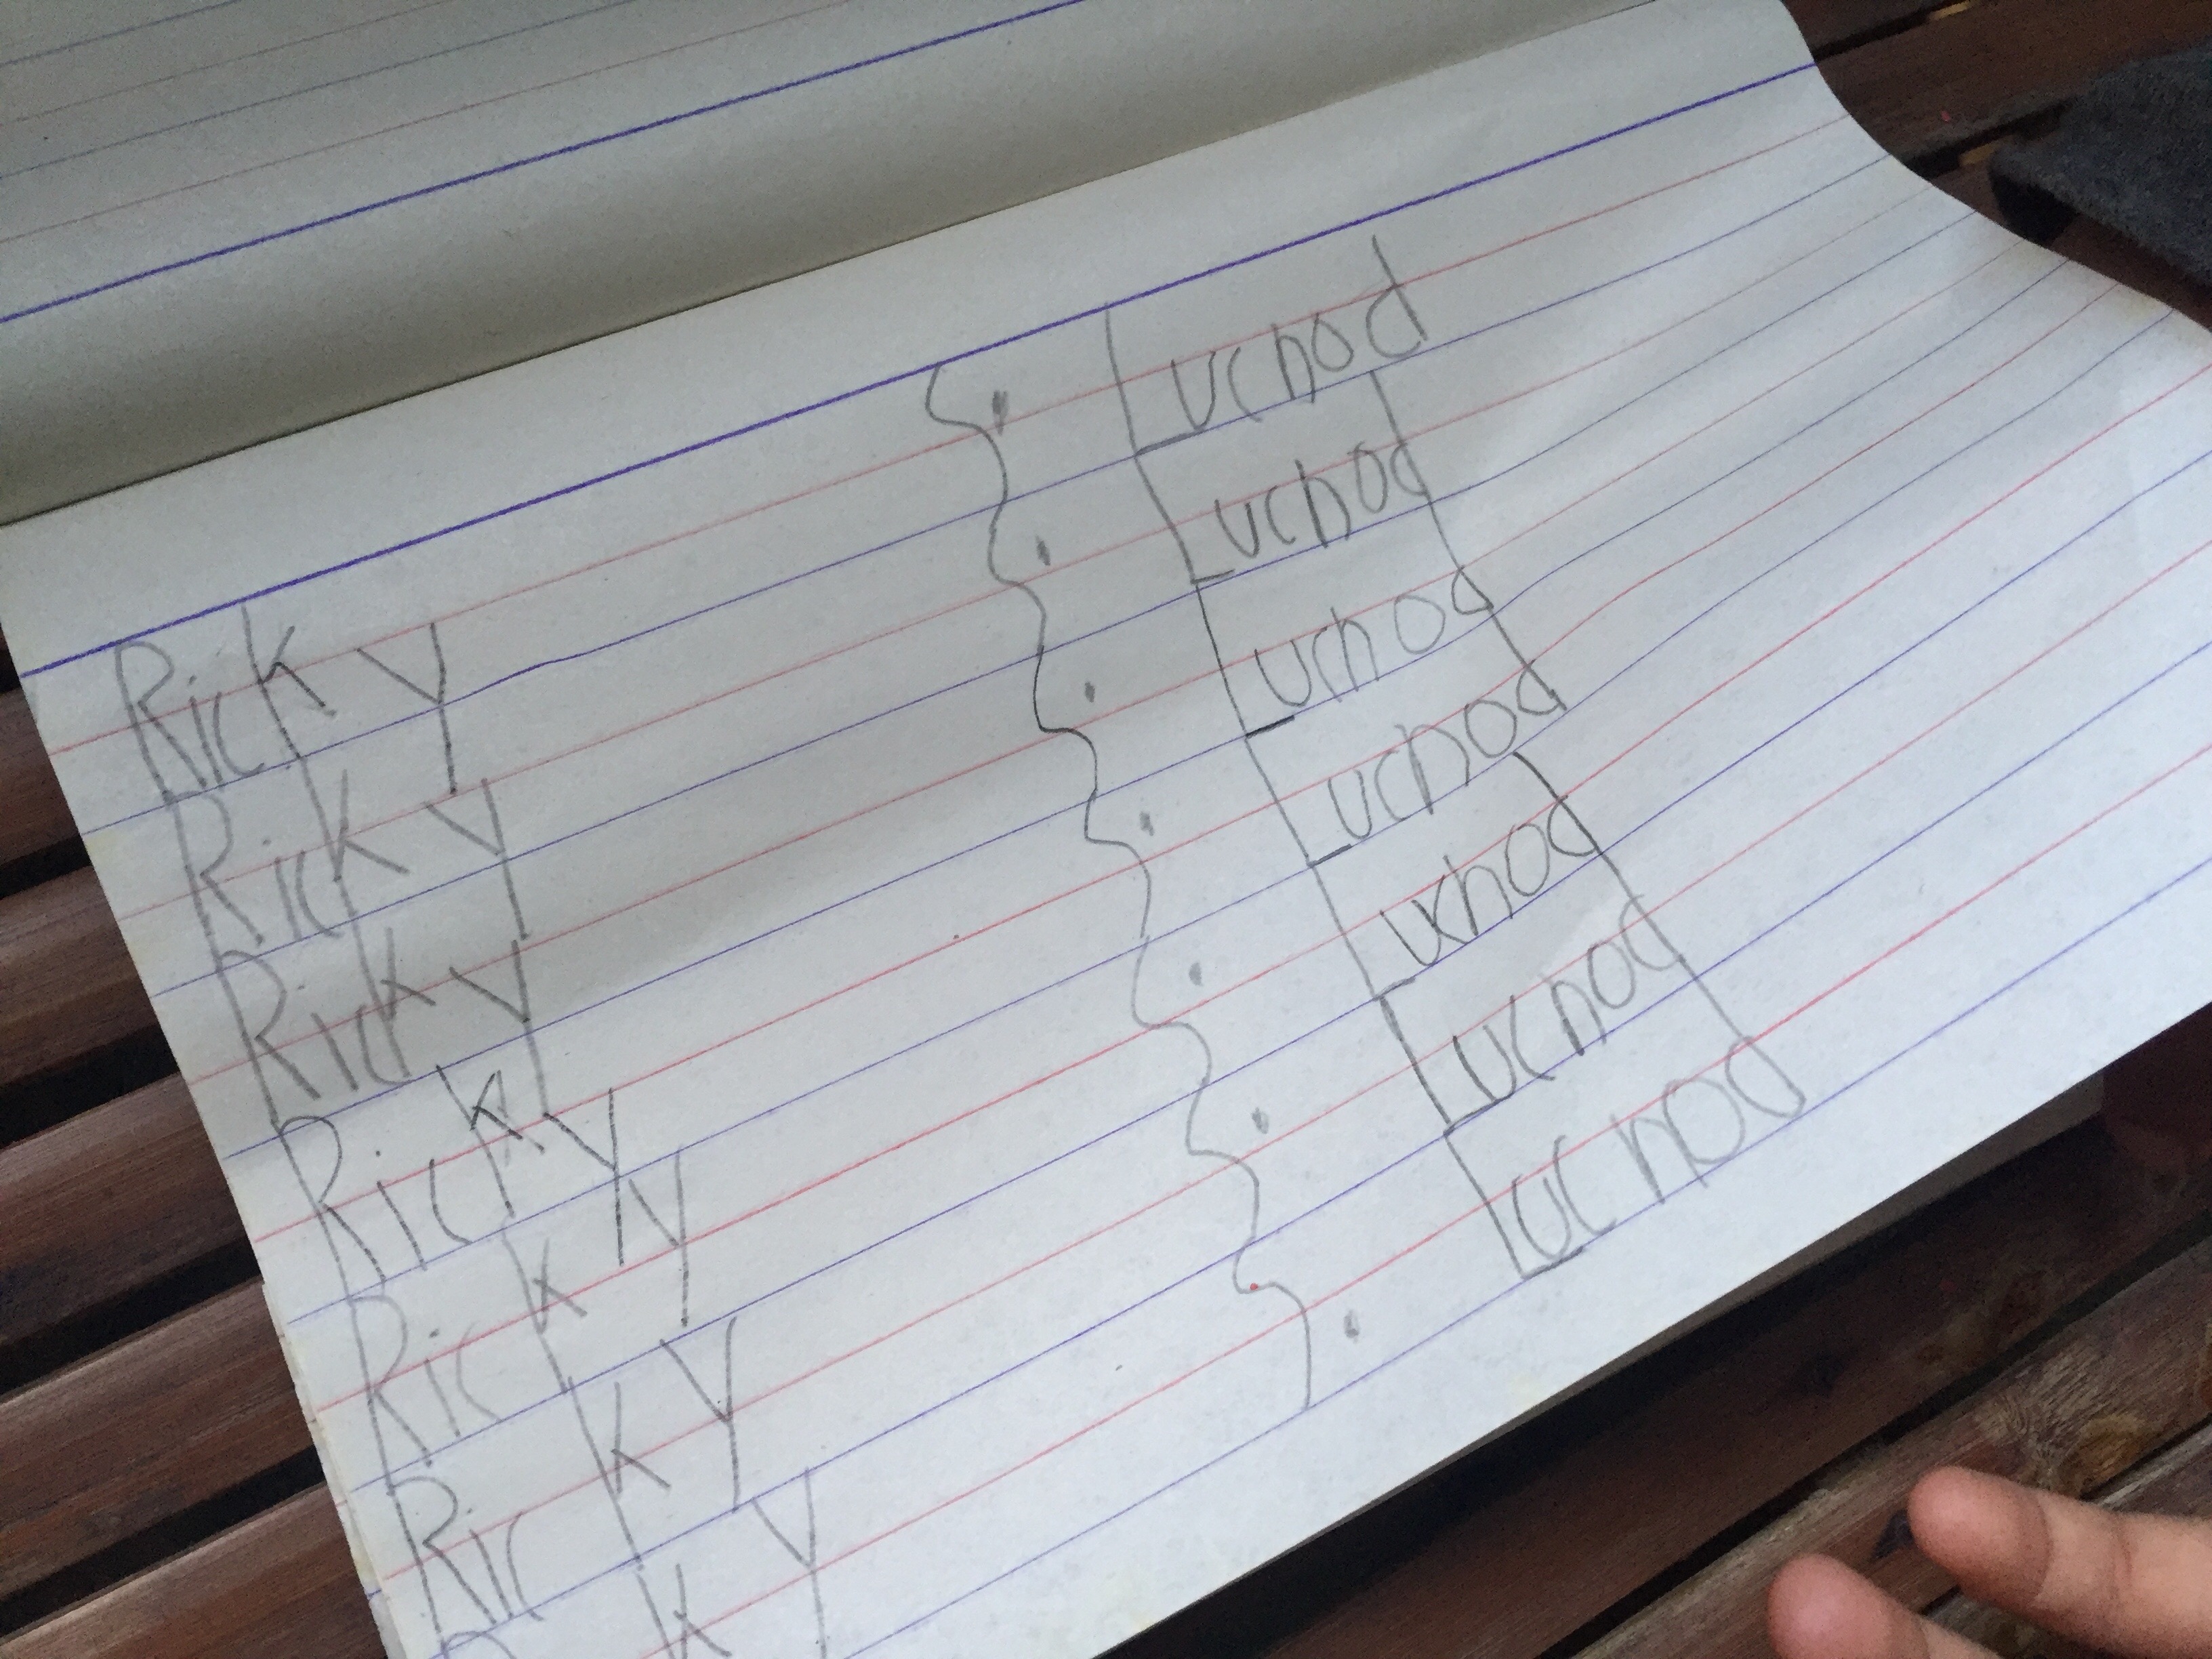 Ricky S. Luchod
Ricky S. Luchod
Ricky S. Luchod
Ricky S. Luchod
Ricky S. Luchod
Ricky S. Luchod
S. Luchod